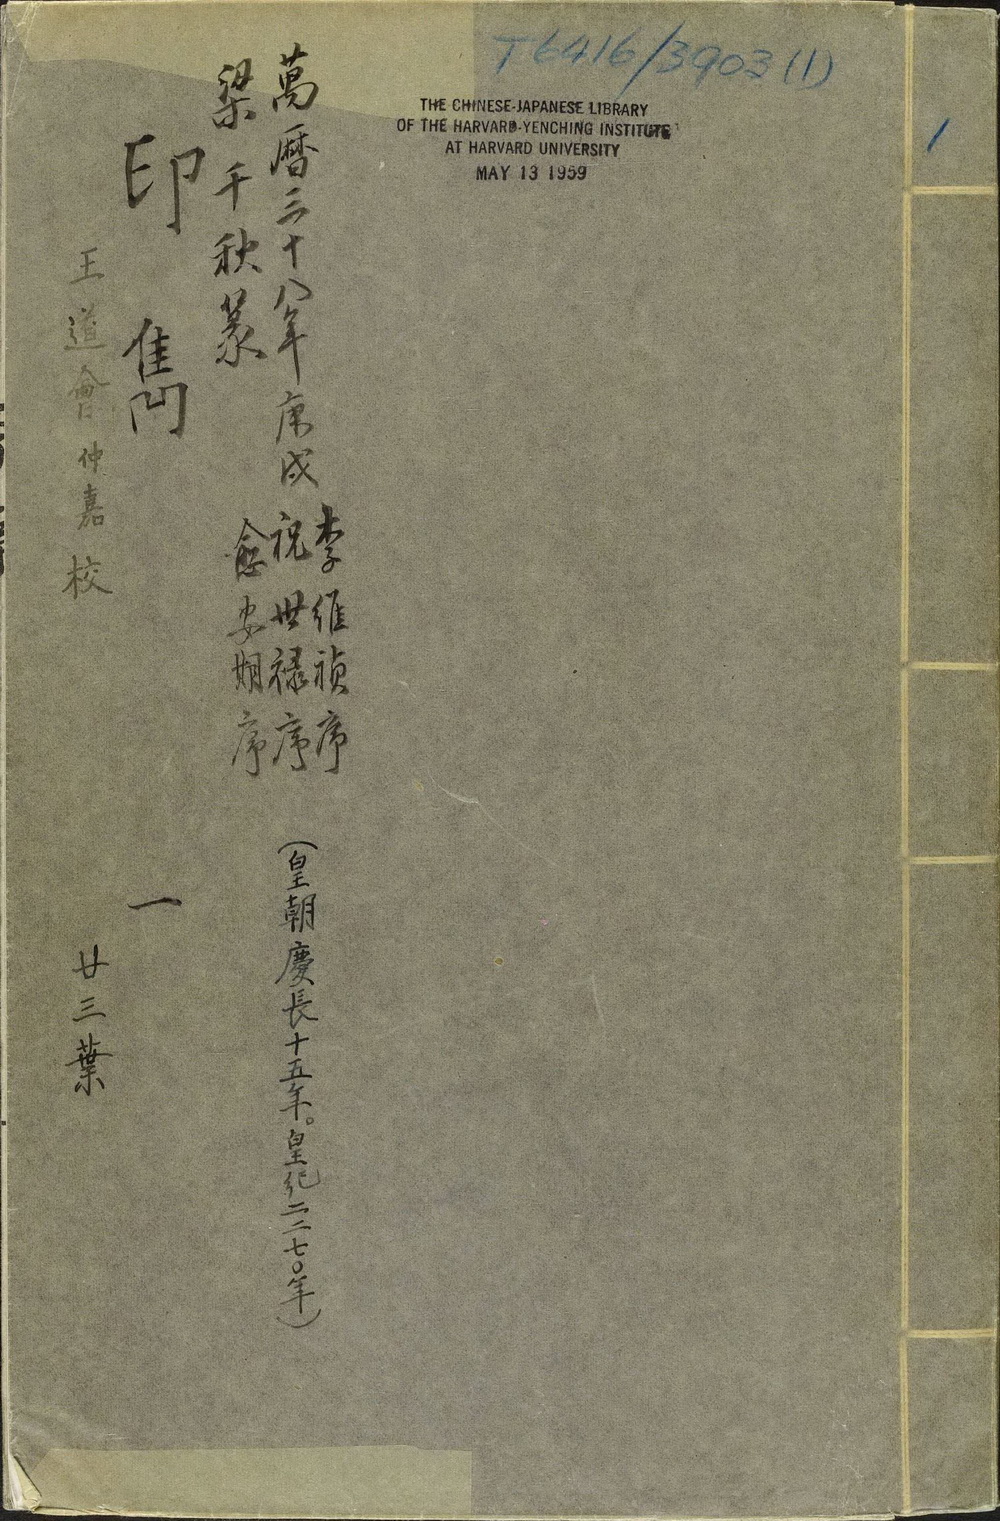 T6416/3903(1)
1
THE CHINESE-JAPANESE LIBRARY
OF THE HARVARD-YENCHING INSTITUTE
AT HARVARD UNIVERSITY
MAY 13 1959
李維禎序
萬曆三十八年庚戌 祝世禄序
(皇朝慶長十五年。皇紀二二七〇年)
俞安期序
梁千秋篆
印雋 一
王道會仲嘉校
廿三葉